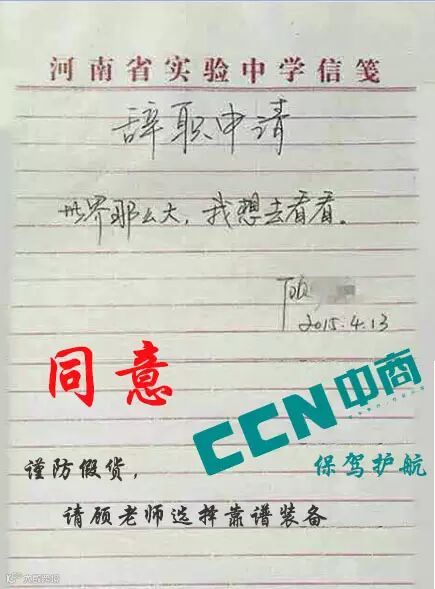 河南省实验中学信笺
辞职申请
世界那么大，我想去看看。
顾
2015.4.13
同意
CCN中商
保驾护航
谨防假货，
请顾老师选择靠谱装备